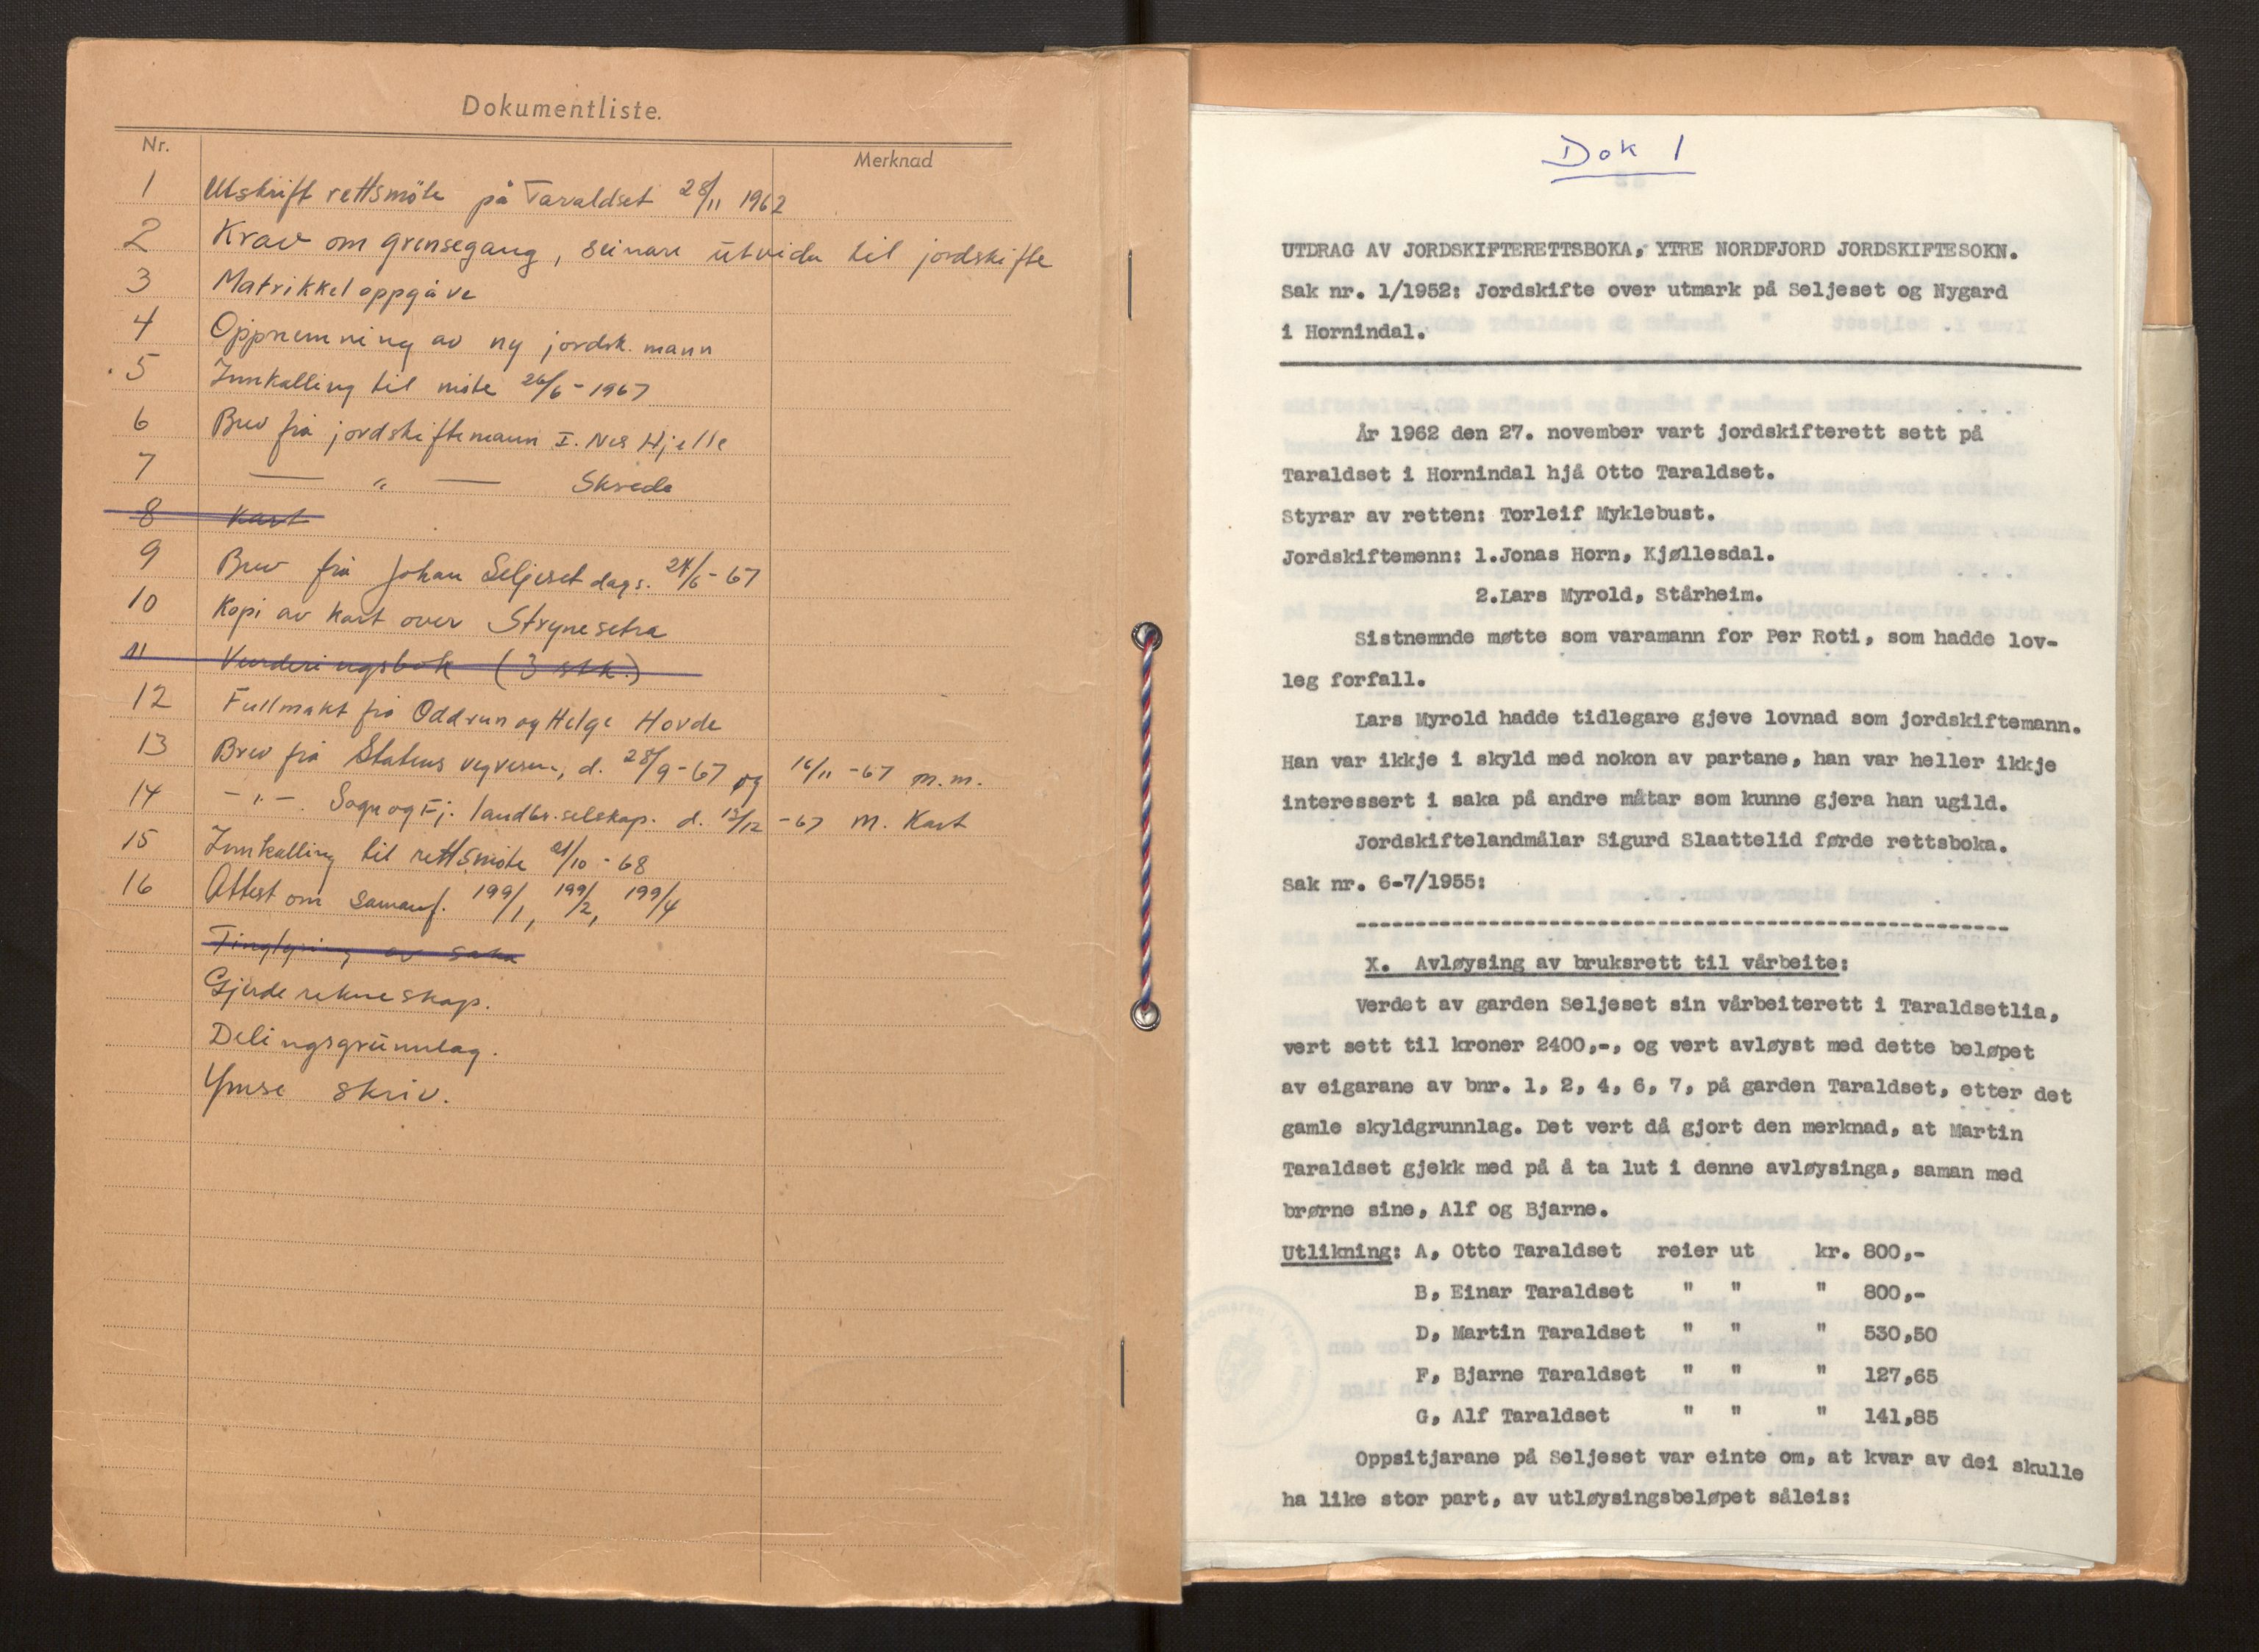 Dokumentliste.
Nr.
Merknad
1 Utskrift rettsmöte på Taraldset 28/11 1962
2 Krav om grensegang, seinare utvida til jordskifte
3 Matrikkeloppgåve
4 Oppnemning av ny jordsk. mann
5 Innkalling til möte 26/6 - 1967
6 Brev frå jordskiftemann I. Nes Hjelle
7 — " — Skrede
8 Kart
9 Brev frå Johan Seljeset dags. 24/6 - 67
10 Kopi av kart over Strynesetra
11 Vurderingsbok (3 stk.)
12 Fullmakt frå Oddrun og Helge Hovde
13 Brev frå Statens vegvesen, d. 28/9 - 67 og 16/11 - 67 m.m.
14 - " - Sogn og Fj. landbr.selskap. d. 13/12 - 67 m. Kart
15 Innkalling til rettsmöte 21/10 - 68
16 Attest om samanf. 199/1, 199/2, 199/4
Tinglysing av saka
Gjerde rekneskap.
Delingsgrunnlag.
Ymse skriv.
Dok 1
UTDRAG AV JORDSKIFTERETTSBOKA, YTRE NORDFJORD JORDSKIFTESOKN.
Sak nr. 1/1952: Jordskifte over utmark på Seljeset og Nygard
i Hornindal.
. . . .
År 1962 den 27. november vart jordskifterett sett på
Taraldset i Hornindal hjå Otto Taraldset.
Styrar av retten: Torleif Myklebust.
Jordskiftemenn: 1.Jonas Horn, Kjøllesdal.
2.Lars Myrold, Stårheim.
Sistnemnde møtte som varamann for Per Roti, som hadde lov-
leg forfall.
Lars Myrold hadde tidlegare gjeve lovnad som jordskiftemann.
Han var ikkje i skyld med nokon av partane, han var heller ikkje
interessert i saka på andre måtar som kunne gjera han ugild.
Jordskiftelandmålar Sigurd Slaattelid førde rettsboka.
Sak nr. 6-7/1955:
------------------------------------------------------
X. Avløysing av bruksrett til vårbeite:
Verdet av garden Seljeset sin vårbeiterett i Taraldsetlia,
vert sett til kroner 2400,-, og vert avløyst med dette beløpet
av eigarane av bnr. 1, 2, 4, 6, 7, på garden Taraldset, etter det
gamle skyldgrunnlag. Det vert då gjort den merknad, at Martin
Taraldset gjekk med på å ta lut i denne avløysinga, saman med
brørne sine, Alf og Bjarne.
Utlikning: A, Otto Taraldset reier ut kr. 800,-
B, Einar Taraldset " " " 800,-
D, Martin Taraldset " " " 530,50
F, Bjarne Taraldset " " " 127,65
G, Alf Taraldset " " " 141,85
Oppsitjarane på Seljeset var einte om, at kvar av dei skulle
ha like stor part, av utløysingsbeløpet såleis: